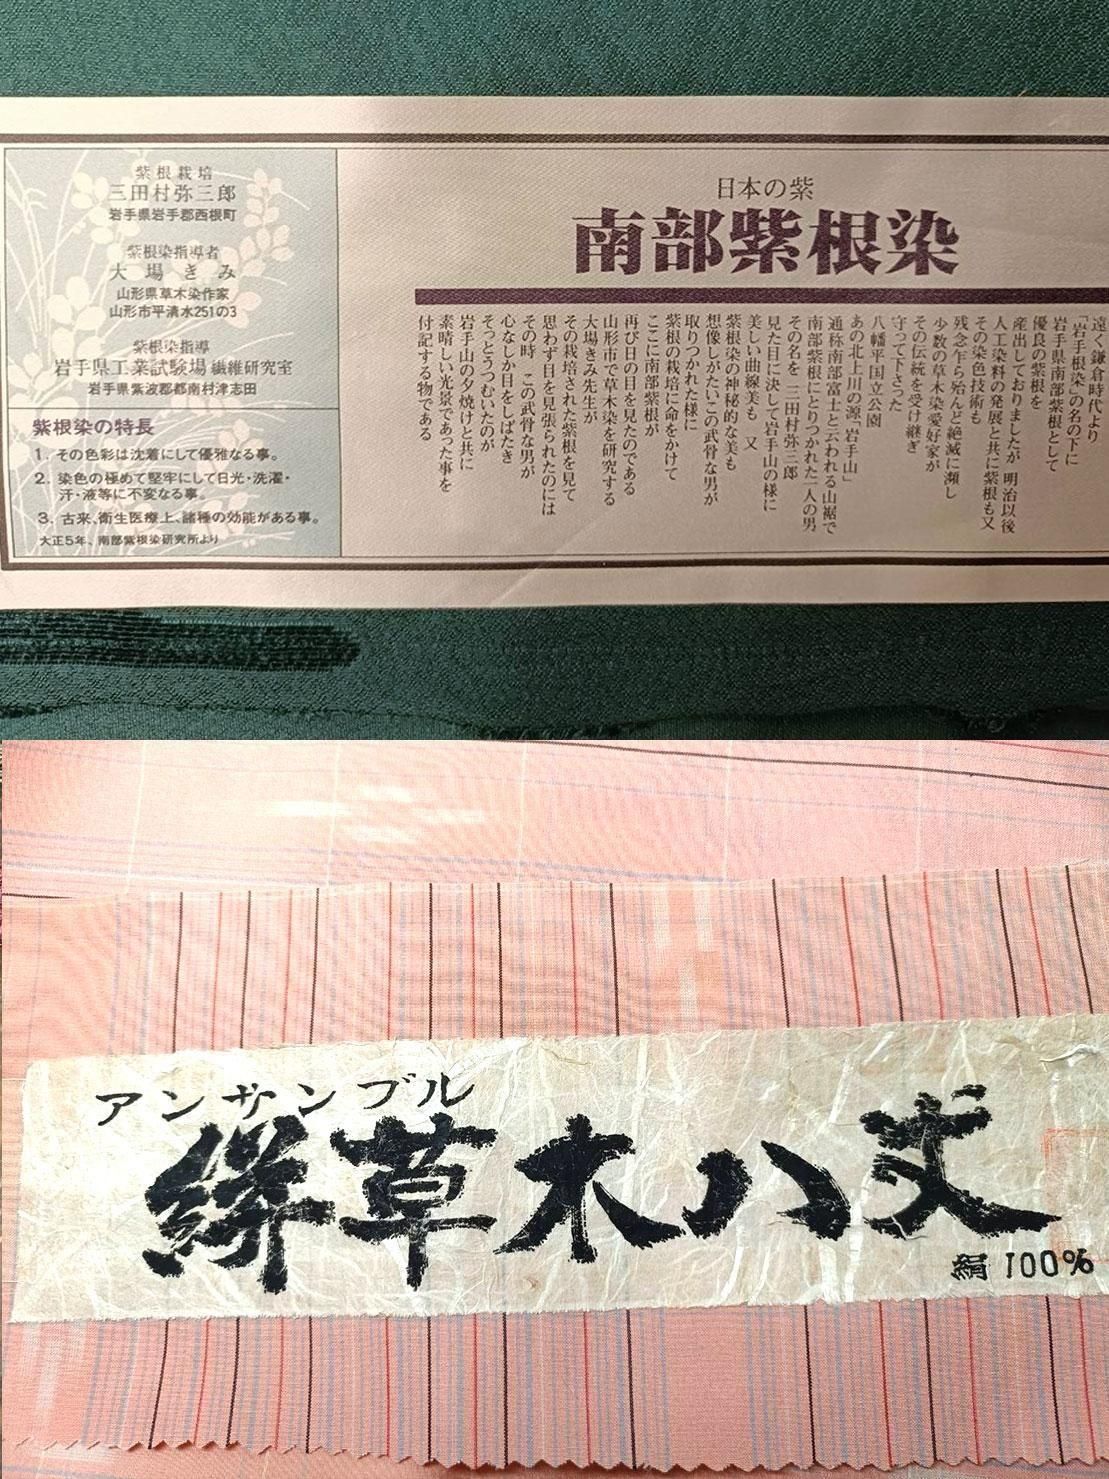 日本の紫
南部紫根染
遠く鎌倉時代より
「岩手根染」の名の下に
岩手県南部紫根として
優良の紫根を
産出しておりましたが 明治以後
人工染料の発展と共に紫根も又
その染色技術も
残念乍ら殆んど絶滅に瀕し
少数の草木染愛好家が
その伝統を受け継ぎ
守って下さった
八幡平国立公園
あの北上川の源「岩手山」
通称南部富士と云われる山裾で
南部紫根にとりつかれた一人の男
その名を 三田村弥三郎
見た目に決して岩手山の様に
美しい曲線美も 又
紫根染の神秘的な美も
想像しがたいこの武骨な男が
取りつかれた様に
紫根の栽培に命をかけて
ここに南部紫根が
再び日の目を見たのである
山形市で草木染を研究する
大場きみ先生が
その栽培された紫根を見て
思わず目を見張られたのには
その時 この武骨な男が
心なしか目をしばたき
そっとうつむいたのが
岩手山の夕焼けと共に
素晴しい光景であった事を
付記する物である
紫根栽培
三田村弥三郎
岩手県岩手郡西根町
紫根染指導者
大場きみ
山形県草木染作家
山形市平清水251の3
紫根染指導
岩手県工業試験場 繊維研究室
岩手県紫波郡都南村津志田
紫根染の特長
1. その色彩は沈着にして優雅なる事。
2. 染色の極めて堅牢にして日光・洗濯・
汗・液等に不変なる事。
3. 古来、衛生医療上、諸種の効能がある事。
大正5年、南部紫根染研究所より
アンサンブル
絣草木八丈
絹100%